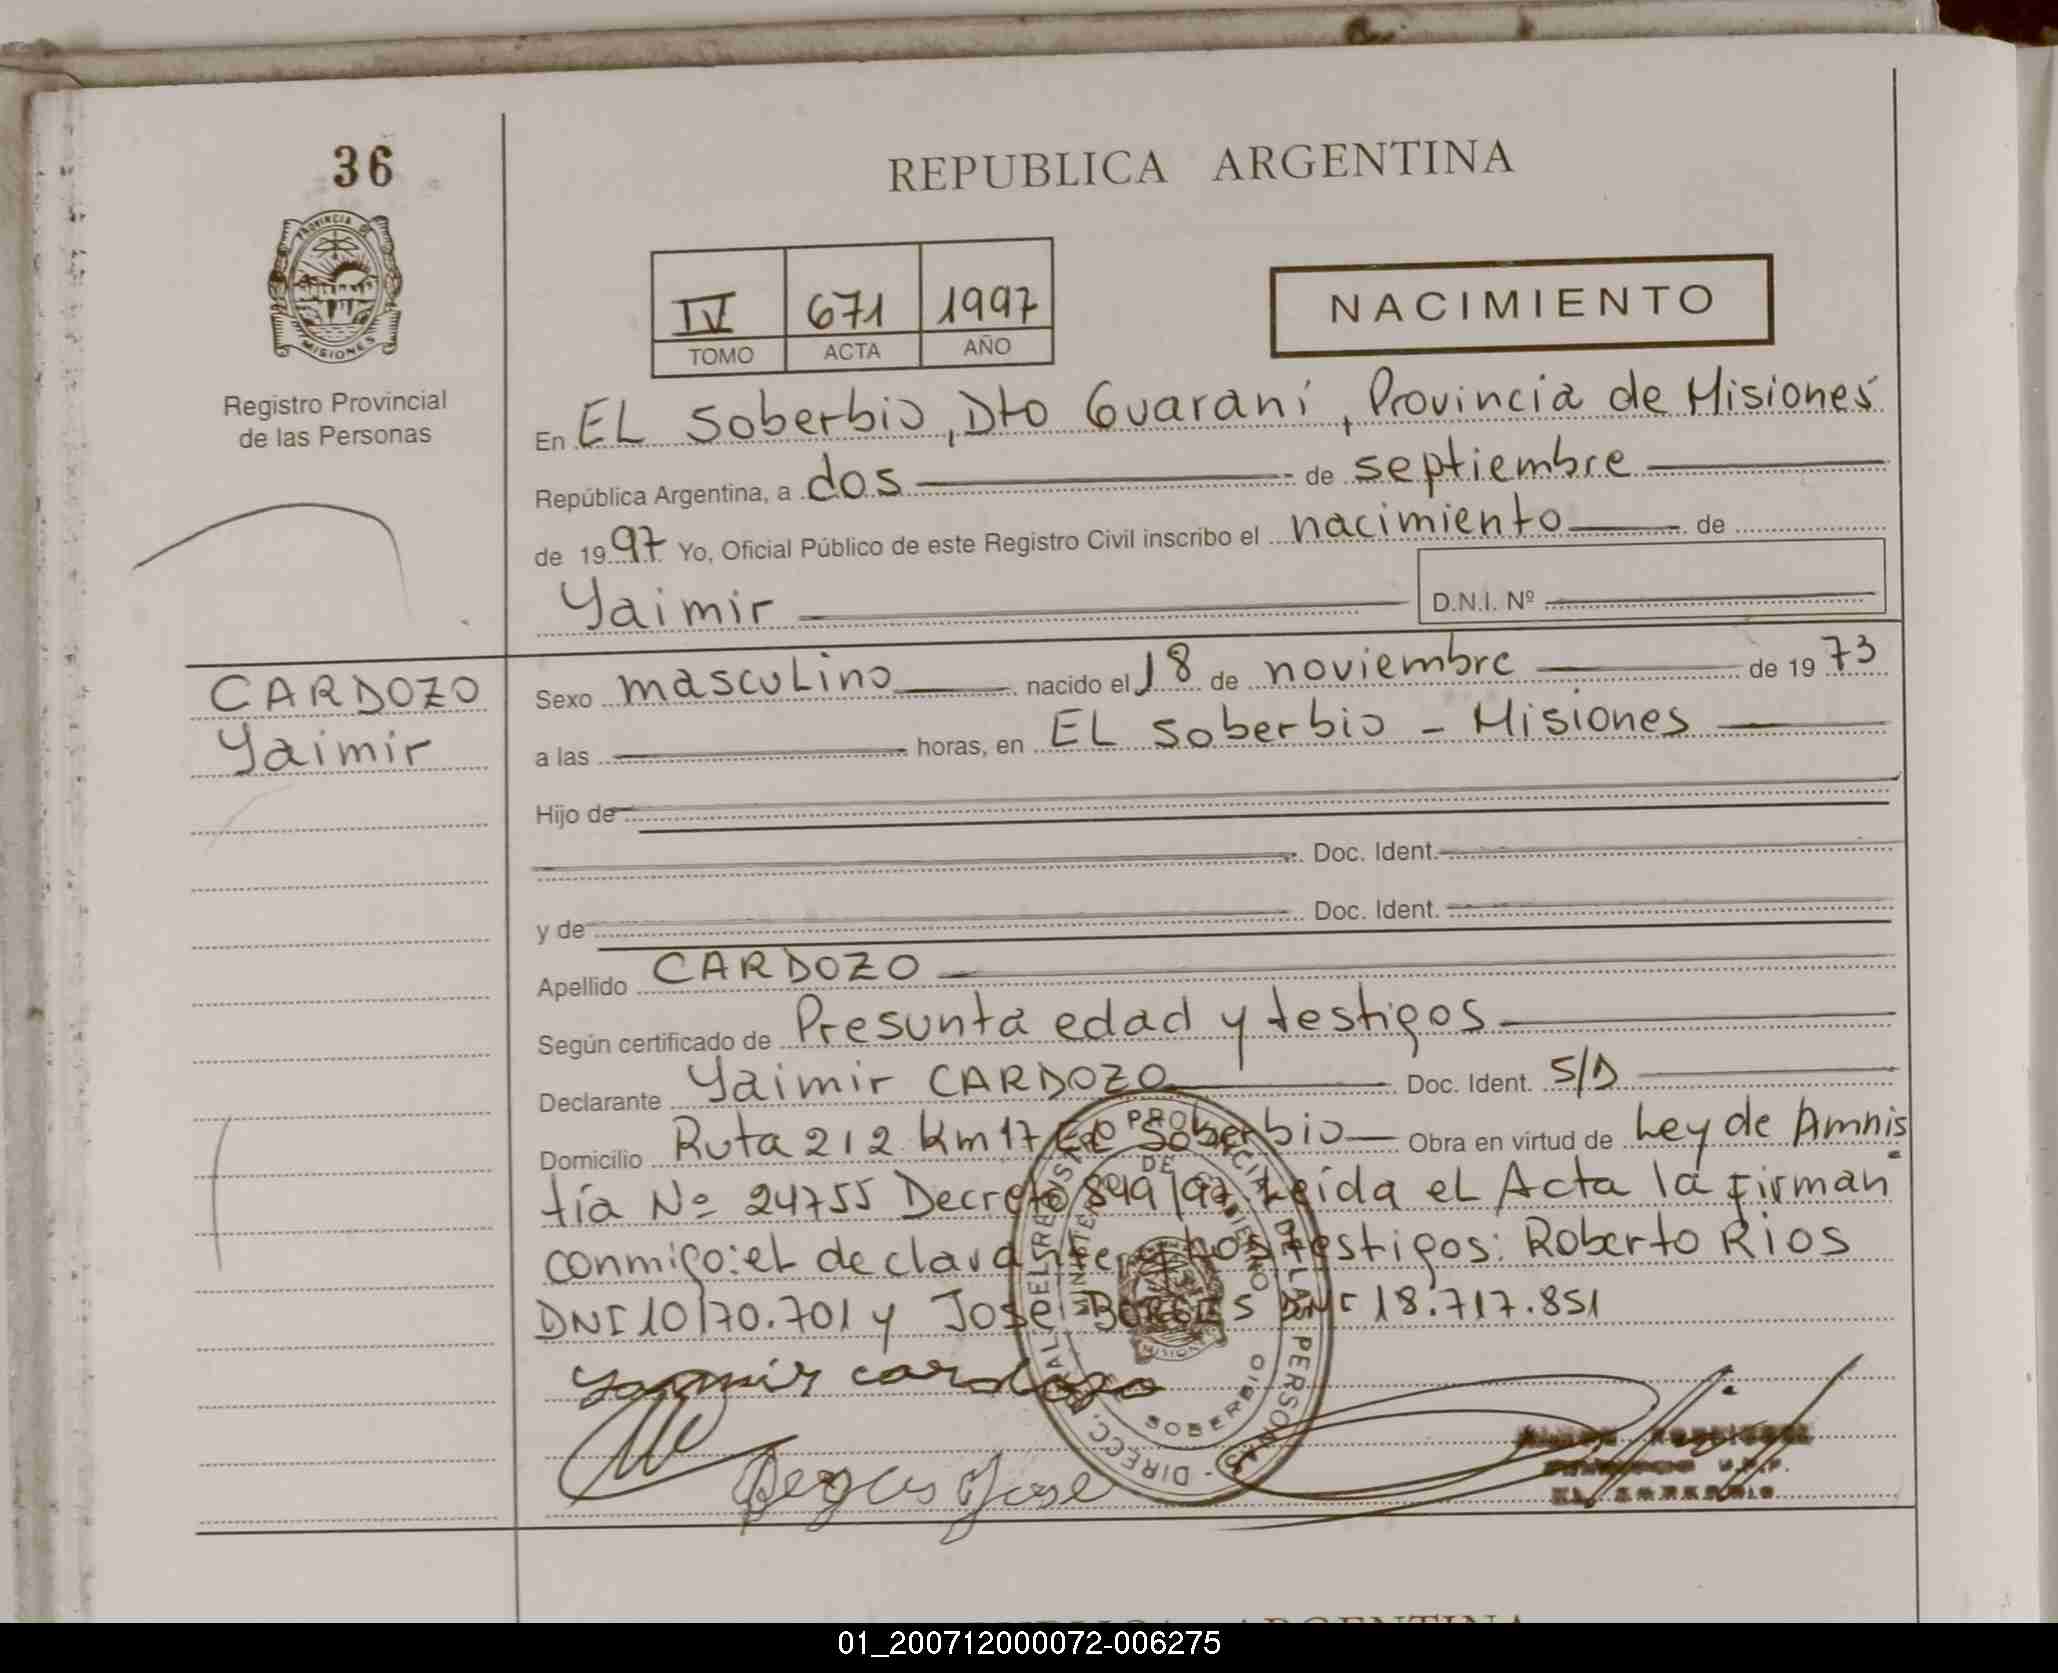 36
REPUBLICA ARGENTINA
PROVINCIA DE
MISIONES
Registro Provincial
de las Personas
IV 671 1997
TOMO ACTA AÑO
NACIMIENTO
En EL Soberbio, Dto Guaraní, Provincia de Misiones
República Argentina, a dos de septiembre
de 1997 Yo, Oficial Público de este Registro Civil inscribo el nacimiento de
Yaimir
D.N.I. Nº
CARDOZO
Yaimir
Sexo mascuLino nacido el 18 de noviembre de 1973
a las horas, en EL Soberbio - Misiones
Hijo de
Doc. Ident.
y de Doc. Ident.
Apellido CARDOZO
Según certificado de Presunta edad y testigos
Declarante Yaimir CARDOZO Doc. Ident. S/D
Domicilio Ruta 212 Km 17 EL Soberbio Obra en virtud de Ley de Amnis
tía Nº 24755 Decreto 899/97. Leída eL Acta la Firman
conmigo: eL declarante y Los testigos: Roberto Rios
DNI 10170.701 y José BORGES DNI 18.717.851
Yaimir cardozo
Borges Jose
SOBERBIO
01_200712000072-006275